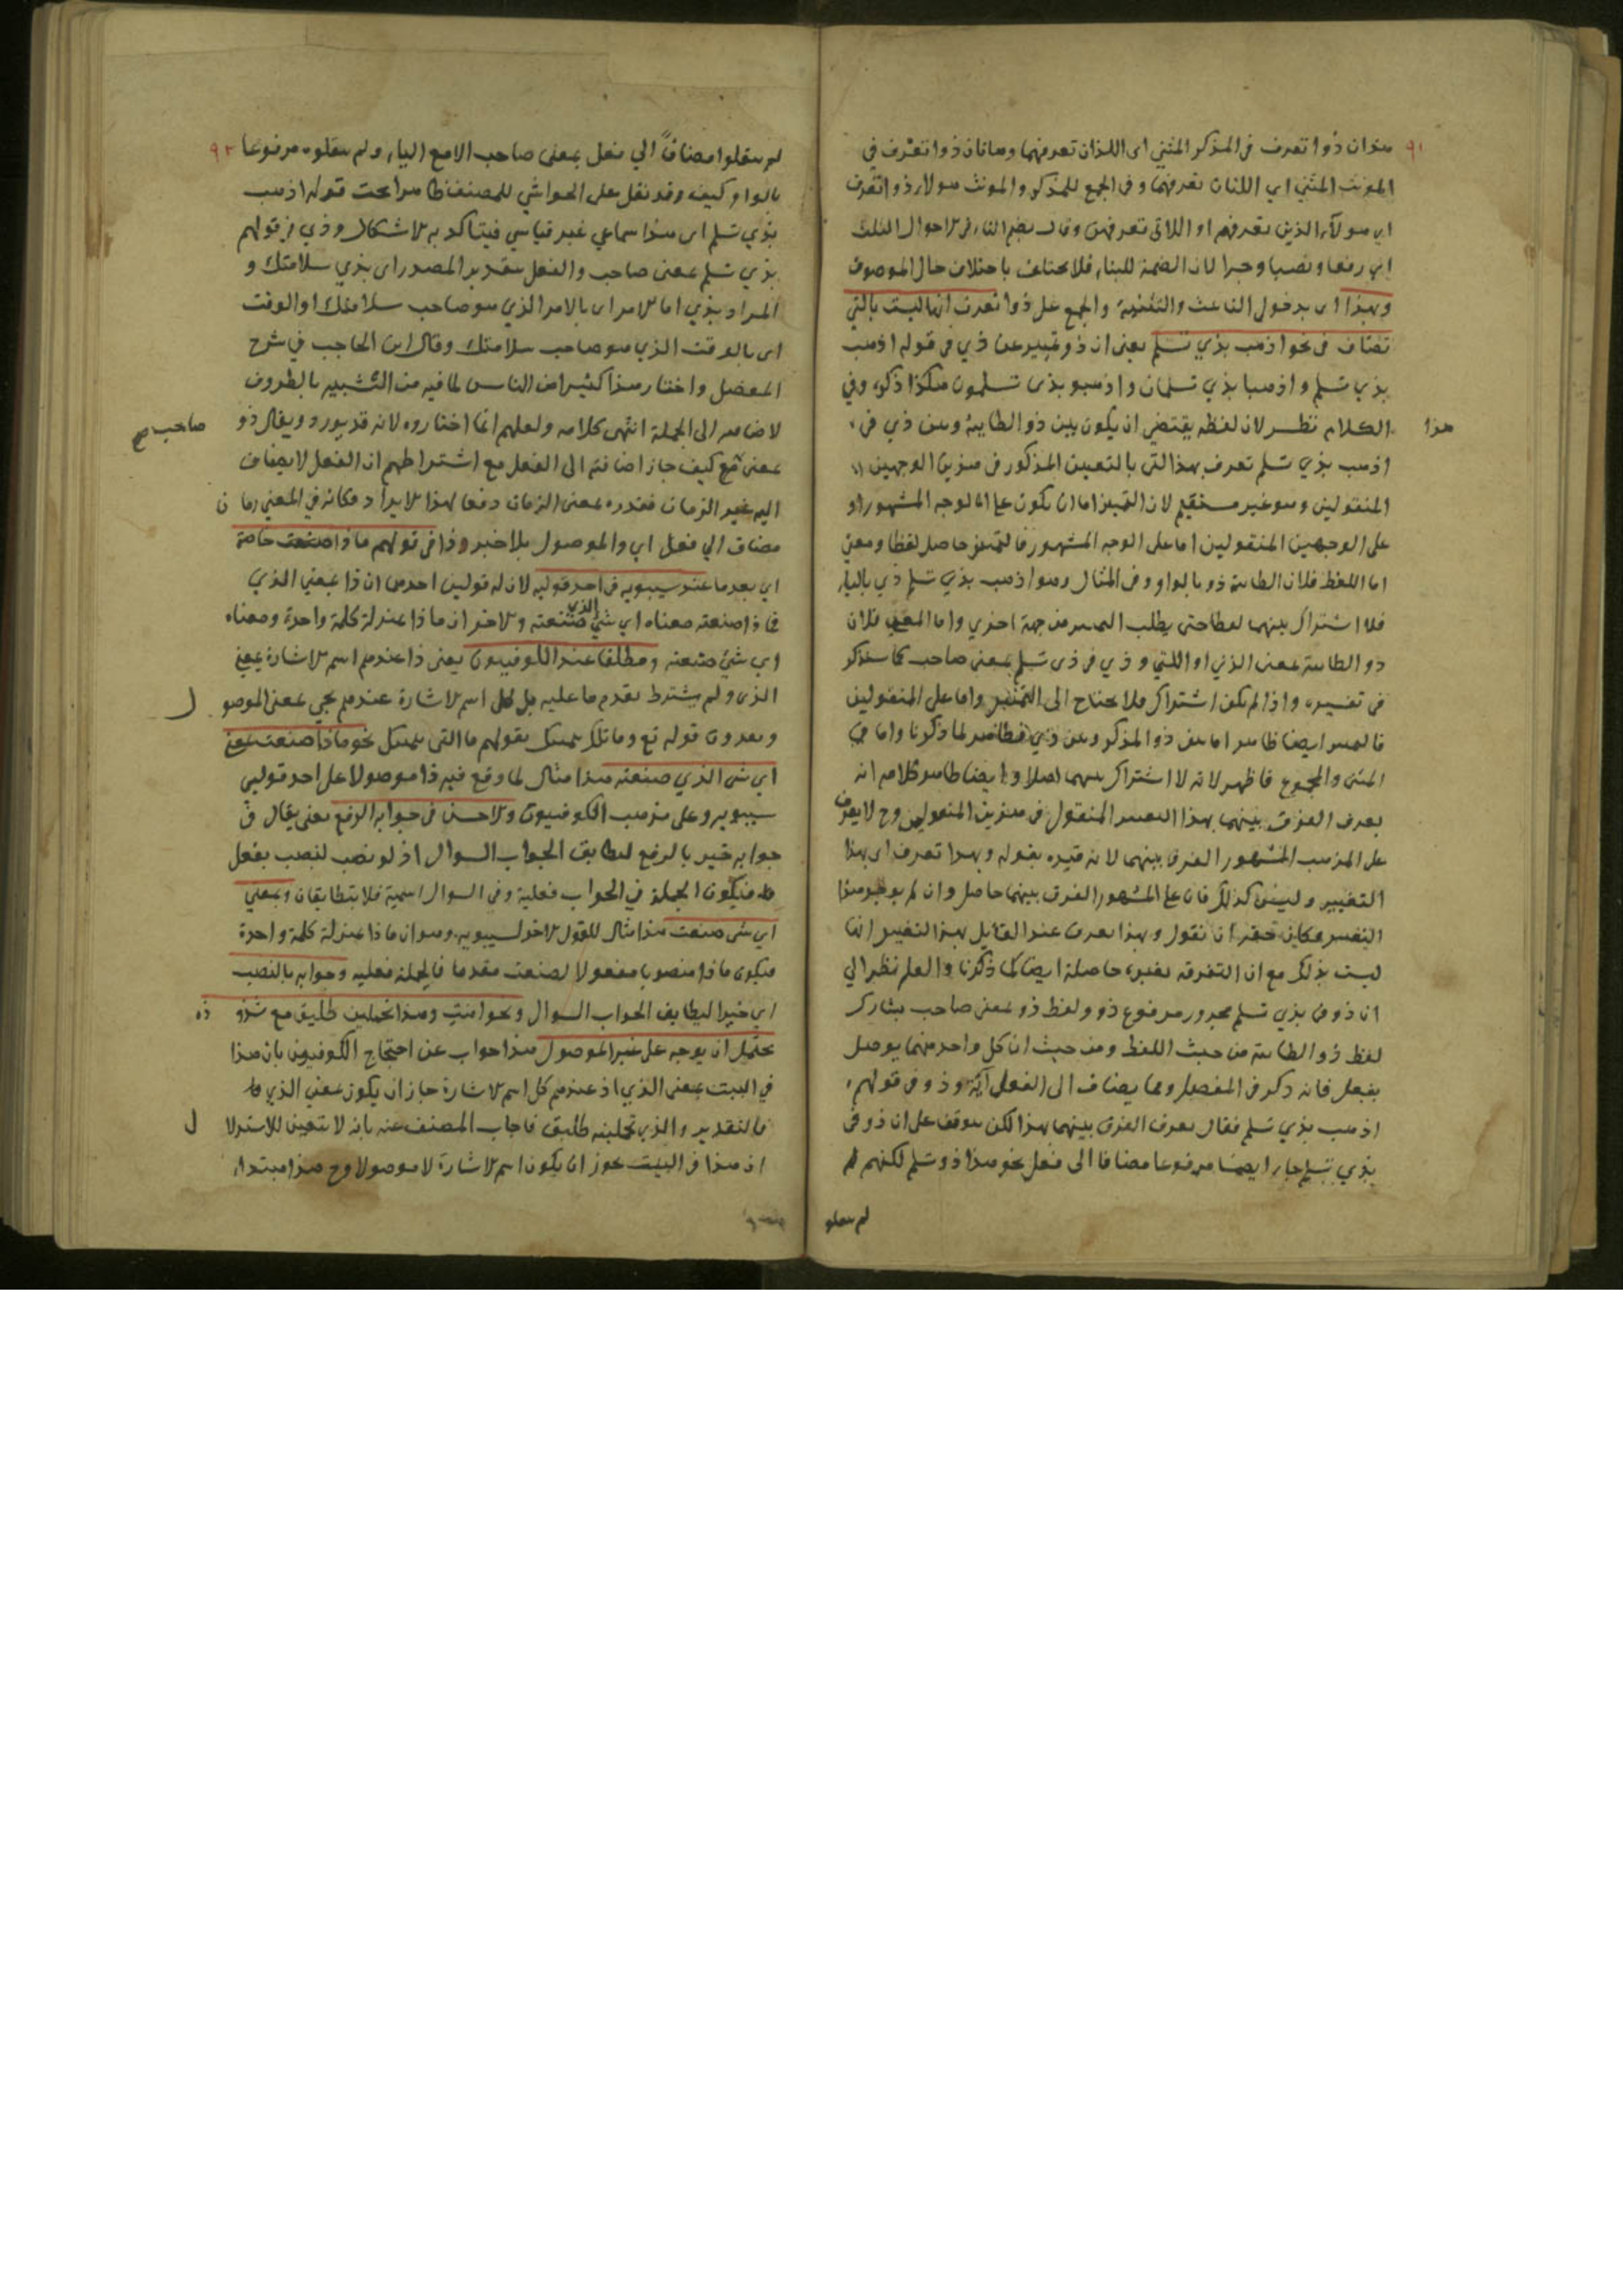 ٩١
هذان ذوا تعرف في المذكر المثني اى اللذان تعرفهما وهاتان ذوا تعرف في
المونث المثني اي اللتان تعرفهما وفي الجمع للمذكر والمونث هولاء ذوا تعرف
اي هولآء الذين تعرفهم او اللاتى تعرفهن وقال بضم التاء في الاحوال الثلث
اي رفعا ونصبا وجرا لان الضمة للبناء فلا يختلف باختلاف حال الموصوف
وبهذا اى بدخول التانيث والتثنية والجمع على ذوا تعرف انها ليست بالتي
تضاف في نحو اذهب بذي تسلم يعنى ان ذو تميير عن ذي في قوله اذهب
بذي تسلم واذهبا بذي تسلمان واذهبو بذى تسلمون هكذا ذكره وفي
هذا الكلام نظر لان لفظه يقتضي ان يكون بين ذو الطايية وبين ذي في
اذهب بذي تسلم تعرف بهذا التي بالتعيين المذكور في هذين الوجهين
المنقولين وهو غير مستقيم لان التمييز اما ان يكون على الوجه المشهور او
على الوجهين المنقولين اما على الوجه المشهور فالتمييز حاصل لفظا ومعنى
اما اللفظ فلان الطايية ذو بالواو وفي المثال وهو اذهب بذي تسلم ذي بالياء
فلا اشتراك بينهما لفظا حتى يطلب التمييز من جهة اخري واما المعنى فلان
ذو الطايية بمعنى الذي او اللتي وذي في ذى تسلم بمعنى صاحب كما سنذكر
في تفسيره واذا لم يكن اشتراك فلا يحتاج الى التمييز واما على المنقولين
فالتمييز ايضا ظاهر اما بين ذو المذكر وبين ذي فظاهر لما ذكرنا واما في
المثنى والمجموع فاظهر لانه لا اشتراك بينهما اصلا و ايضا ظاهر كلامه انه
يعرف الفرق بينهما بهذا التفسير المنقول في هذين المنقولين وح لا يعرف
على المذهب المشهور الفرق بينهما لانه قيده بقوله وبهذا تعرف اى بهذا
التغيير وليس كذلك فان على المشهور الفرق بينهما حاصل وان لم يوجد هذا
التفسير فكان حقه ان نقول وبهذا يعرف عند القايل بهذا التغيير انها
ليست بذلك مع ان التفرقة بغيره حاصلة ايضا كما ذكرنا والعلم نظر الي
ان ذو في بذي تسلم مجرور مرفوع ذو ولفظ ذو بمعنى صاحب يشارك
لفظ ذو الطايية من حيث اللفظ ومن حيث ان كل واحد منهما يوصل
بفعل فانه ذكر في المفصل ومما يضاف الى الفعل آية وذو في قولهم
اذهب بذي تسلم فقال يعرف الفرق بينهما بهذا لكن يتوقف على ان ذو في
بذي تسلم جاء ايضا مرفوعا مضافا الى فعل نحو هذا ذو تسلم لكنهم لم
لم ينقلو
٩٢
لم ينقلوا مضافاً الي فعل بمعنى صاحب الا مع الياء ولم ينقلوه مرفوعا
بالواو كيف وقد نقل على الحواشي للمصنف تحت قوله اذهب
بذي تسلم اى هذا سماعي غير قياسي فيتاكد به الاشكال وذي في قولهم
بذي تسلم بمعنى صاحب والفعل بتقدير المصدر اى بذي سلامتك و
المراد بذي اما الامر اى بالامر الذي هو صاحب سلامتك او الوقت
اى بالوقت الذي هو صاحب سلامتك وقال ابن الحاجب في شرح
المفصل واختار هذا كثير من الناس لما فيه من التشبيه بالظروف
لاضافته الى الجملة انتهى كلامه ولعلهم انما اختاروه لانه قد يورد ويقال ذو
صاحب صح
بمعنى كيف جاز اضافته الى الفعل مع اشتراطهم ان الفعل لا يضاف
اليه غير الزمان فقدره بمعنى الزمان دفعا لهذا الايراد فكانه في المعنى زمان
مضاف الي فعل اي والموصول بلا خبر وذا في قولهم ماذا صنعت خاصة
اي بعد ما عند سيبويه في احد قوليه لان له قولين احدهما ان ذا بمعني الذي
فماذا صنعته معناه اي شي الذي صنعته والاخر ان ماذا بمنزلة كلمة واحدة ومعناه
اي شي صنعته ومطلقا عند الكوفييون يعنى ذا عندهم اسم الاشارة بمعنى
الذى ولم يشترط تقدم ما عليه بل كل اسم الاشارة عندهم يجي بمعنى الموصول
ويعدون قوله تع وما تلك بيمينك بقولهم ما التى بيمينك نحو ماذا صنعت بمعنى
اي شى الذي صنعته هذا مثال لما وقع فيه ذا موصولا على احد قولي
سيبويه وعلى مذهب الكوفييون والاحسن في جوابه الرفع يعنى يقال في
جوابه خير بالرفع ليطابق الجواب السوال اذ لو نصب لنصب بفعل
فيكون الجملة في الجواب فعلية وفى السوال اسمية فلا يتطابقان وبمعني
اي شى صنعت هذا مثال للقول الاخر لسيبويه وهو ان ماذا بمنزلة كلمة واحدة
فيكون ماذا منصوبا مفعولا لصنعت مقدما فالجملة فعليه وجوابه بالنصب
اي خيرا ليطابق الجواب السوال ونحو امنت وهذا تحملين طليق مع شذوذه
يحتمل ان يوجه على غير الموصول هذا جواب عن احتجاج الكوفيون بان هذا
في البيت بمعنى الذي اذ عندهم كل اسم الاشارة جاز ان يكون بمعني الذي
فالتقدير والذي تحملينه طليق فاجاب المصنف عنه بانه لا يتعين للاستدلال
ان هذا في البيت يجوز ان يكون اسم الاشارة لا موصولا وح هذا مبتداء